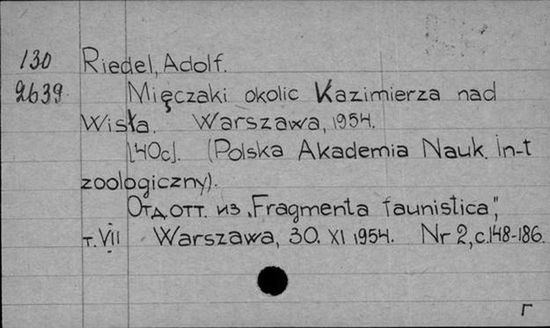 130 Riedel, Adolf.
2639. Mięczaki okolic Kazimierza nad
Wisła. Warszawa, 1954.
[40c]. (Polska Akademia Nauk. In-t
zoologiczny).
Отд. отт. из „Fragmenta faunistica",
т. VII Warszawa, 30. XI 1954. Nr 2, с. 148-186.
Г